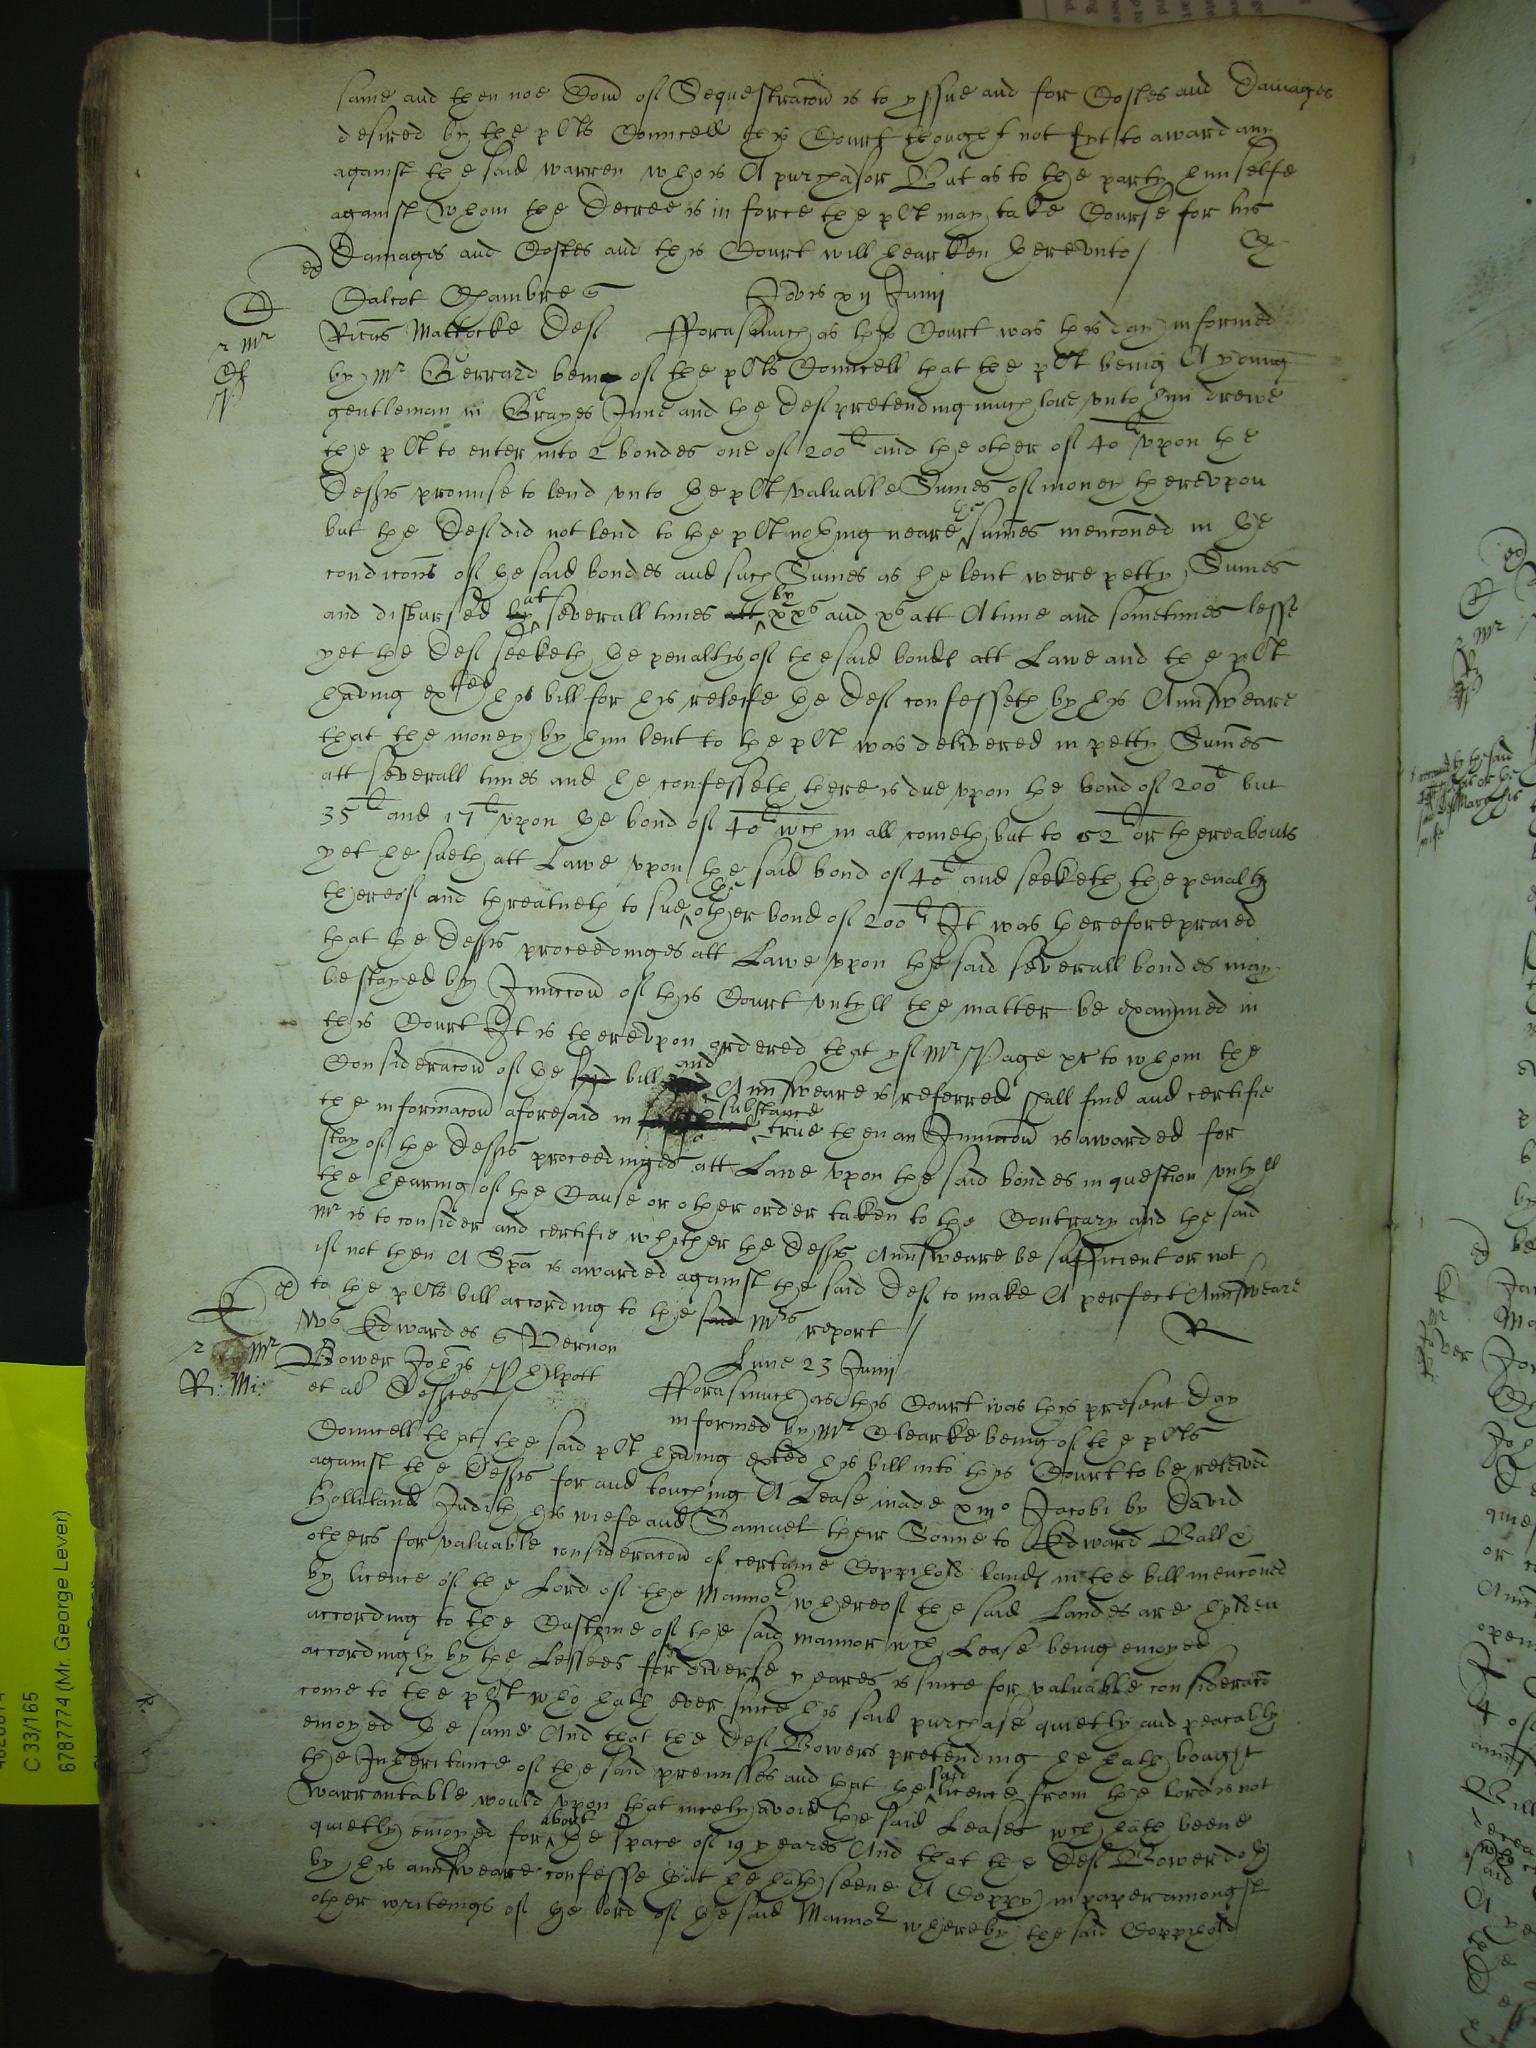 same and then noe Comd of Sequestracon is to yssue and for Costes and Damages
desired by the plts Councell this Court thought not fytt to award any
against the said warren who is A purchasor But as to the party himselfe
against whom the Decree is in force the plt may take Course for his
Damages and Costes and this Court will hearken herevnto /
Calcot Chambre Jovis xii Junij
Ricus Mattocke Def fforasmuch as this Court was this day informed
by Mr Gerrard being of the plts Councell that the plt being A young
gentleman in Grayes Inne and the Def pretending much love vnto him drewe
the plt to enter into 2 bondes one of 200l and the other of 40l vpon the
Defts promise to lend vnto the plt valuable Sumes of money therevpon
but the Def did not lend to the plt nothing neare the sumes menconed in the
condicons of the said bondes and such Sumes as he lent were petty Sumes
and disbursed by at severall times att by xxs and xs att A time and sometimes lesse
yet the Def seeketh the penaltys of the said bondes att Lawe and the plt
having exhted his bill for his releife the Def confesseth by his Aunsweare
that the money by him lent to the plt was delivered in petty Sumes
att severall times and he confesseth there is due vpon the bond of 200l but
35l and 17l vpon the bond of 40l wch in all cometh but to 52l or thereabouts
yet he sueth att Lawe vpon the said bond of 40l and seeketh the penalty
thereof and threatneth to sue the other bond of 200l It was therefore praied
that the Defts proceedinges att Lawe vpon the said severall bondes may
be stayed by Iniuccon of this Court vntyll the matter be examined in
this Court It is therevpon ordered that yf Mr Page xr to whom the
Consideracon of the said bill and Aunsweare is referred shall find and certifie
the informacon aforesaid in substance true then an Iniuccon is awarded for
stay of the Defts proceedinges att Lawe vpon the said bondes in question vntyll
the hearing of the Cause or other order taken to the Contrary and the said
Mr is to consider and certifie whether the Defts Aunsweare be sufficient or not
if not then A Spa is awarded against the said Def to make A perfect Aunsweare
to the plts bill according to the said Mrs report /
R
Edwardes Vernon
Mr
Ri: Mi:
Bower Johis Phylpott Lune 23 Junij
et al Deftes / fforasmuch as this Court was this present day
informed by Mr Clearke being of the plts
Councell that the said plt having exhted his bill into this Court to be releived
against the Defts for and touching A Lease made xiijo Jacobi by David
Holliland Judith his wiefe and Samuel their Sonne to Edward Ball &
others for valuable consideracon of certaine Coppihold landes in the bill menconed
by licence of the Lord of the Mannor whereof the said Landes are holden
according to the Custome of the said mannor wch Lease being enioyed
accordingly by the Lessees for diverse yeares is since for valuable consideracon
come to the plt who hath ever since his said purchase quietly and peacably
enioyed the same And that the Def Bowers pretending he hath bought
the Inheritance of the said premisses and that the said licence from the lord is not
warrantable would vpon that nicety avoid the said Leases wch hath beene
quietly enioyed for about the space of 19 yeares And that the Def Bower doth
by his aunsweare confesse that he hath seene A Coppy in paper amongst
other writeings of the lord of the said Mannor whereby the said Coppihold
C 33/165
6787774 (Mr. George Lever)